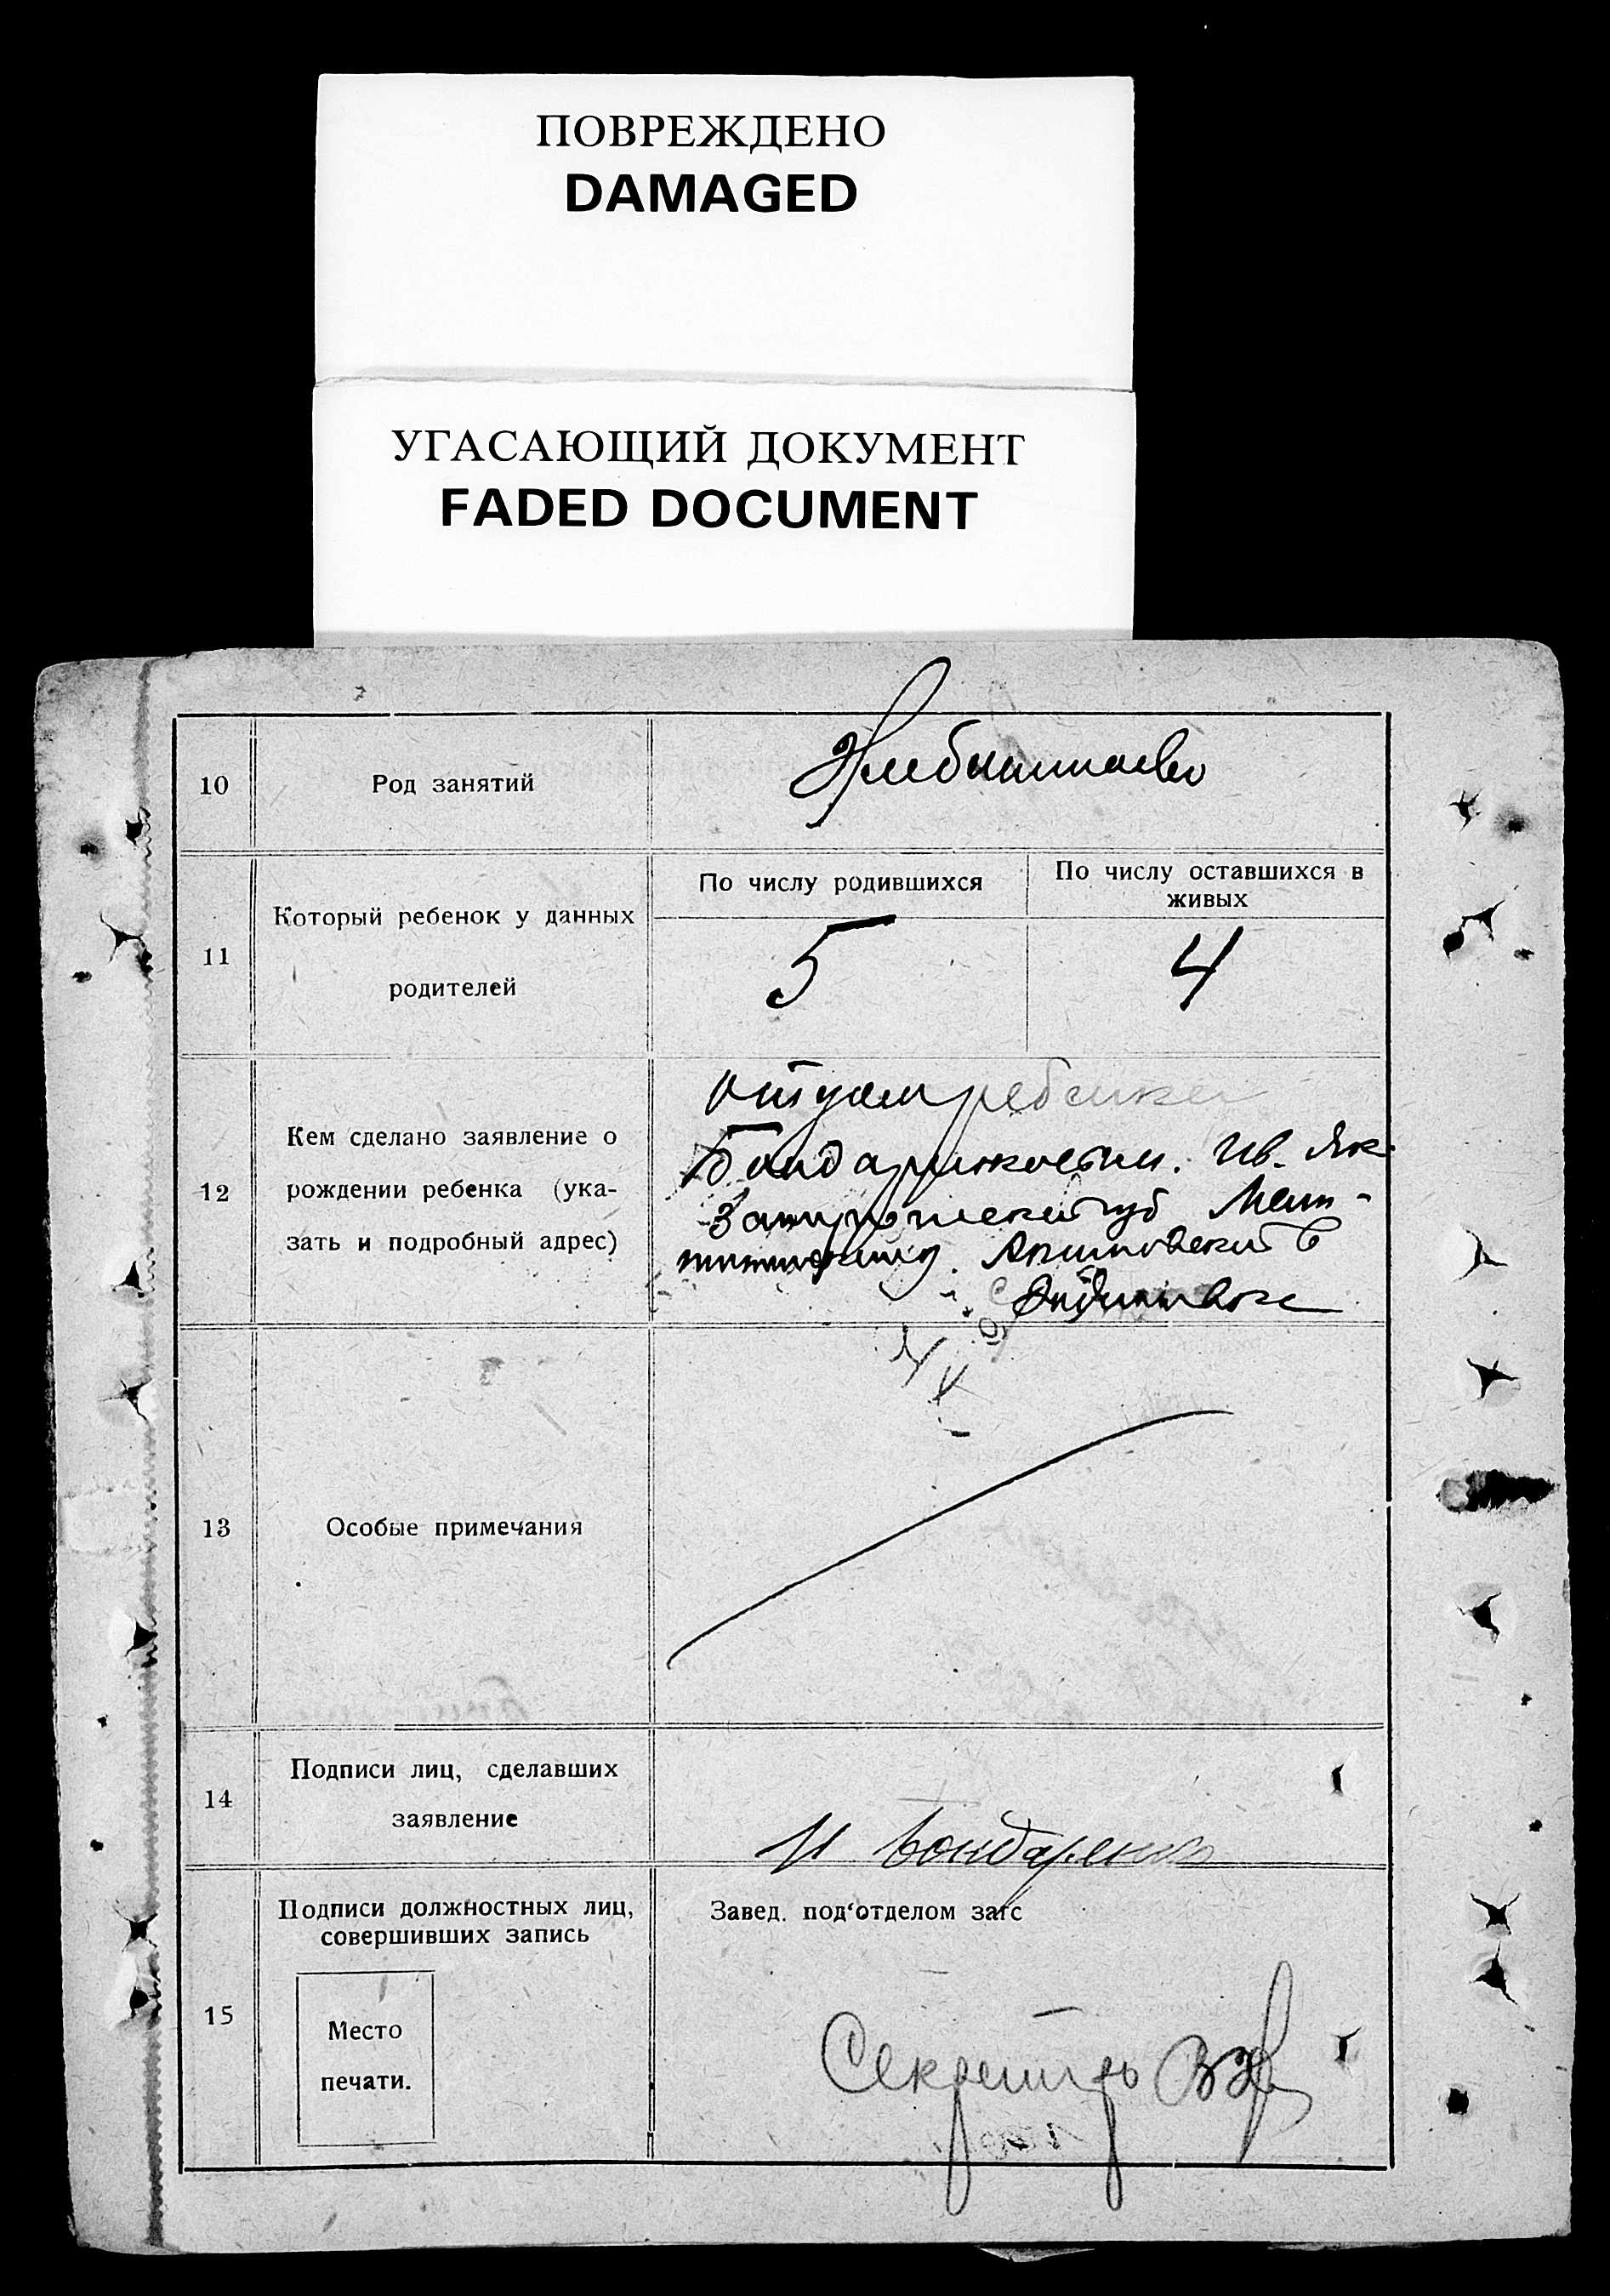 ПОВРЕЖДЕНО
DAMAGED
УГАСАЮЩИЙ ДОКУМЕНТ
FADED DOCUMENT
10
Род занятий
Хлебопашество
11
Который ребенок у данных
родителей
По числу родившихся
По числу оставшихся в
живых
5
4
12
Кем сделано заявление о
рождении ребенка (ука-
зать и подробный адрес)
отцом ребенка
Ив. Як.
губ Мели-
Акимовской в
13
Особые примечания
14
Подписи лиц, сделавших
заявление
И Бондаренко
15
Подписи должностных лиц,
совершивших запись
Место
печати.
Завед. под‘отделом загс
Секретарь